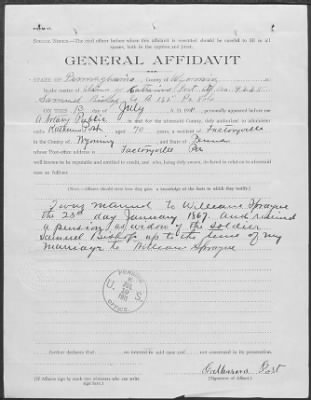 SPECIAL NOTICE.—The civil officer before whom this affidavit is executed should be careful to fill in all
spaces, both in the caption and jurat.
GENERAL AFFIDAVIT
STATE OF Pennsylvania, County of Wyoming, ss:
In the matter of Claim of Katherine Post, No.
Samuel Bishop Co A 132 Pa Vols
ON THIS 13 day of July A. D. 19 personally appeared before me
a Notary Public in and for the aforesaid County, duly authorized to administer
oaths Katherine Post aged 70 years, a resident of Factoryville
in the County of Wyoming and State of Penna
whose Post-office address is Factoryville Pa
well known to be reputable and entitled to credit, and who, being duly sworn, declared in relation to aforesaid
case as follows:
(NOTE.—Affiants should state how they gain a knowledge of the facts to which they testify.)
I was married to William Sprague
the 23d day January 1867. and received
a pension as widow of the soldier
Samuel Bishop up to the time of my
marriage to William Sprague
PENSION
U. S.
OFFICE
further declares that no interest in said case and not concerned in its prosecution.
Catherine Post
(If Affiant sign by mark two witnesses who can write
sign here.)
(Signature of Affiant.)